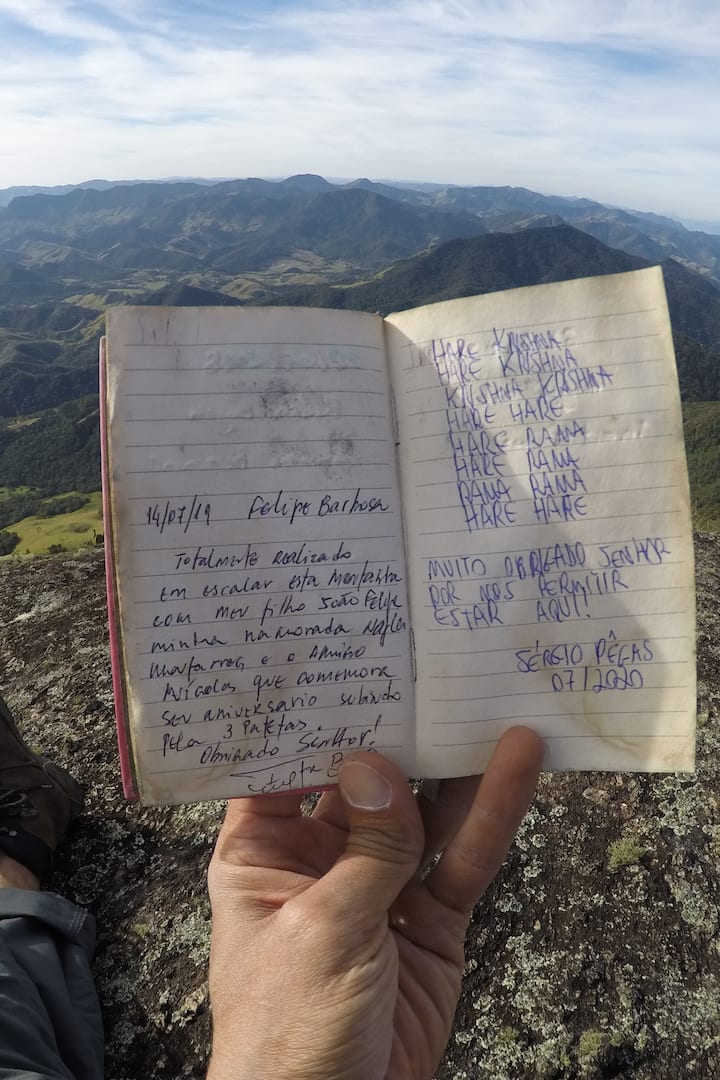 14/07/19 Felipe Barbosa
Totalmente realizado
em escalar esta montanha
com meu filho João Felipe
minha namorada
e o Amigo
Nícolas que comemora
seu aniversario subindo
pela 3 Patetas.
Obrigado Senhor!
HARE KRISHNA
HARE KRISHNA
KRISHNA KRISHNA
HARE HARE
HARE RAMA
HARE RAMA
RAMA RAMA
HARE HARE
MUITO OBRIGADO SENHOR
POR NOS PERMITIR
ESTAR AQUI!
SÉRGIO PÊGAS
07/2020